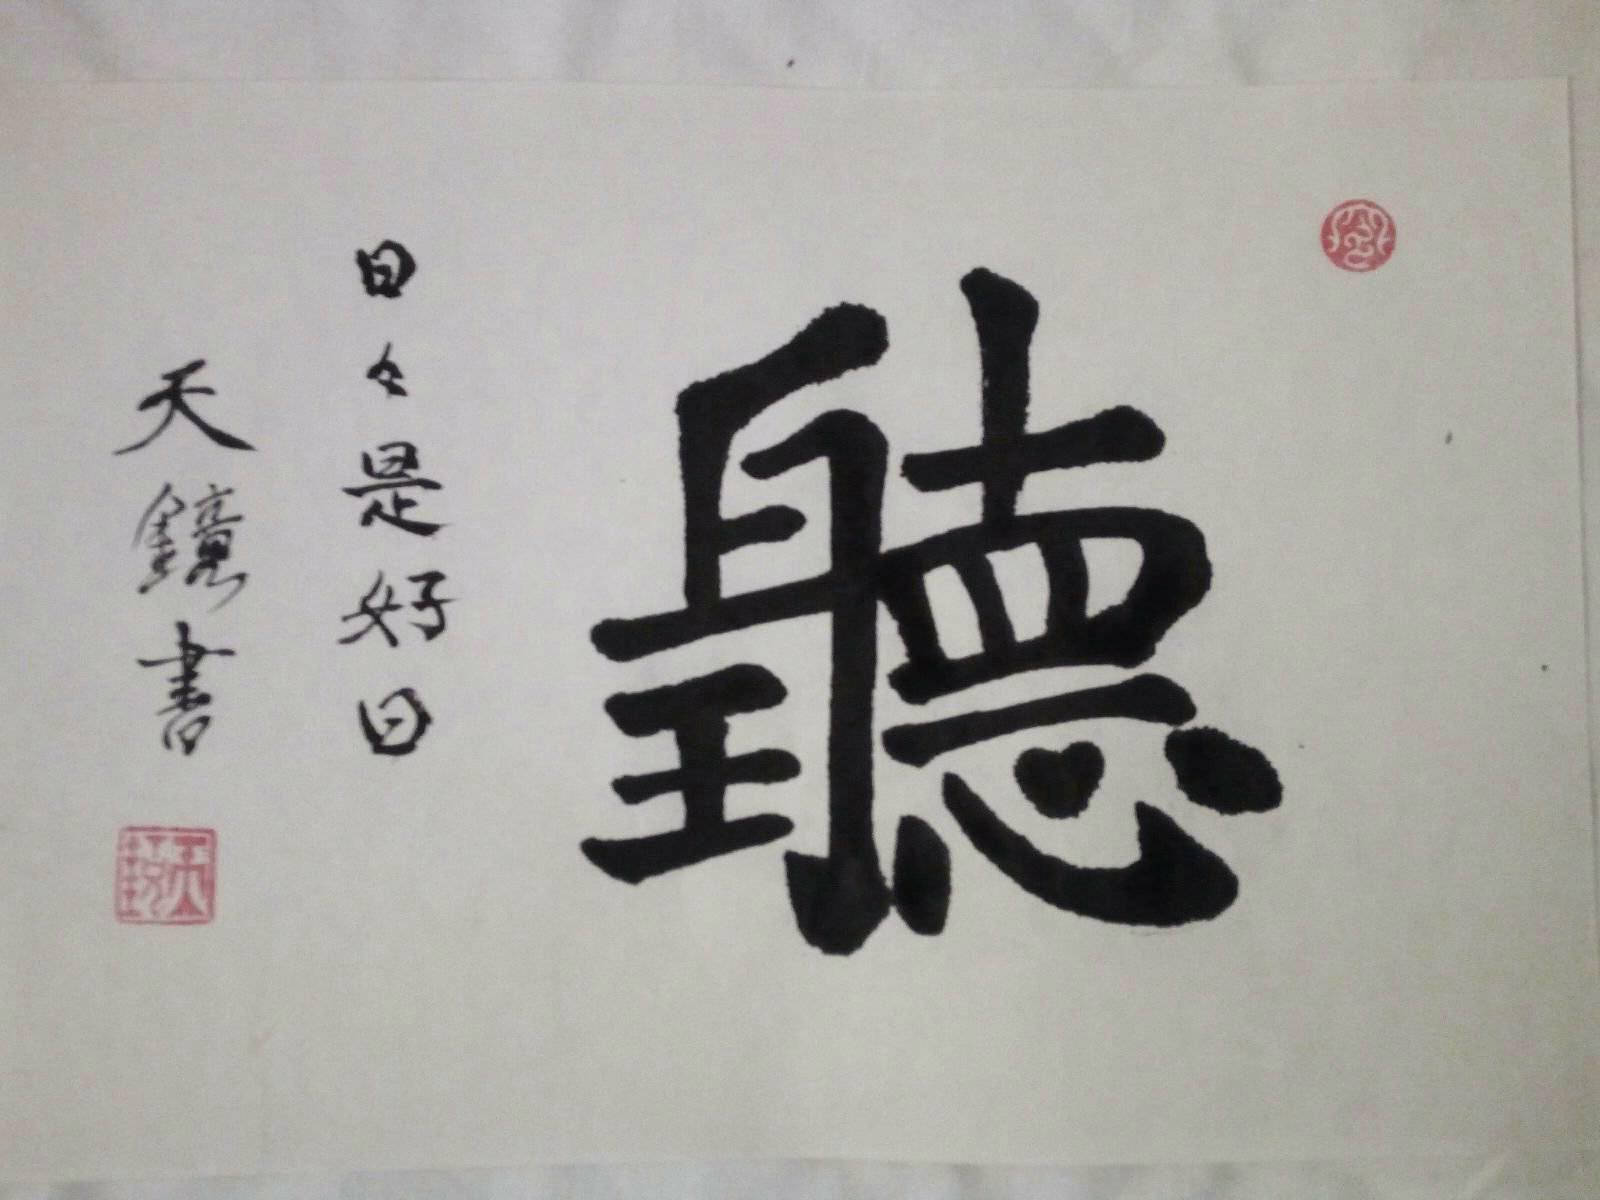 聽
日々是好日
天鏡書